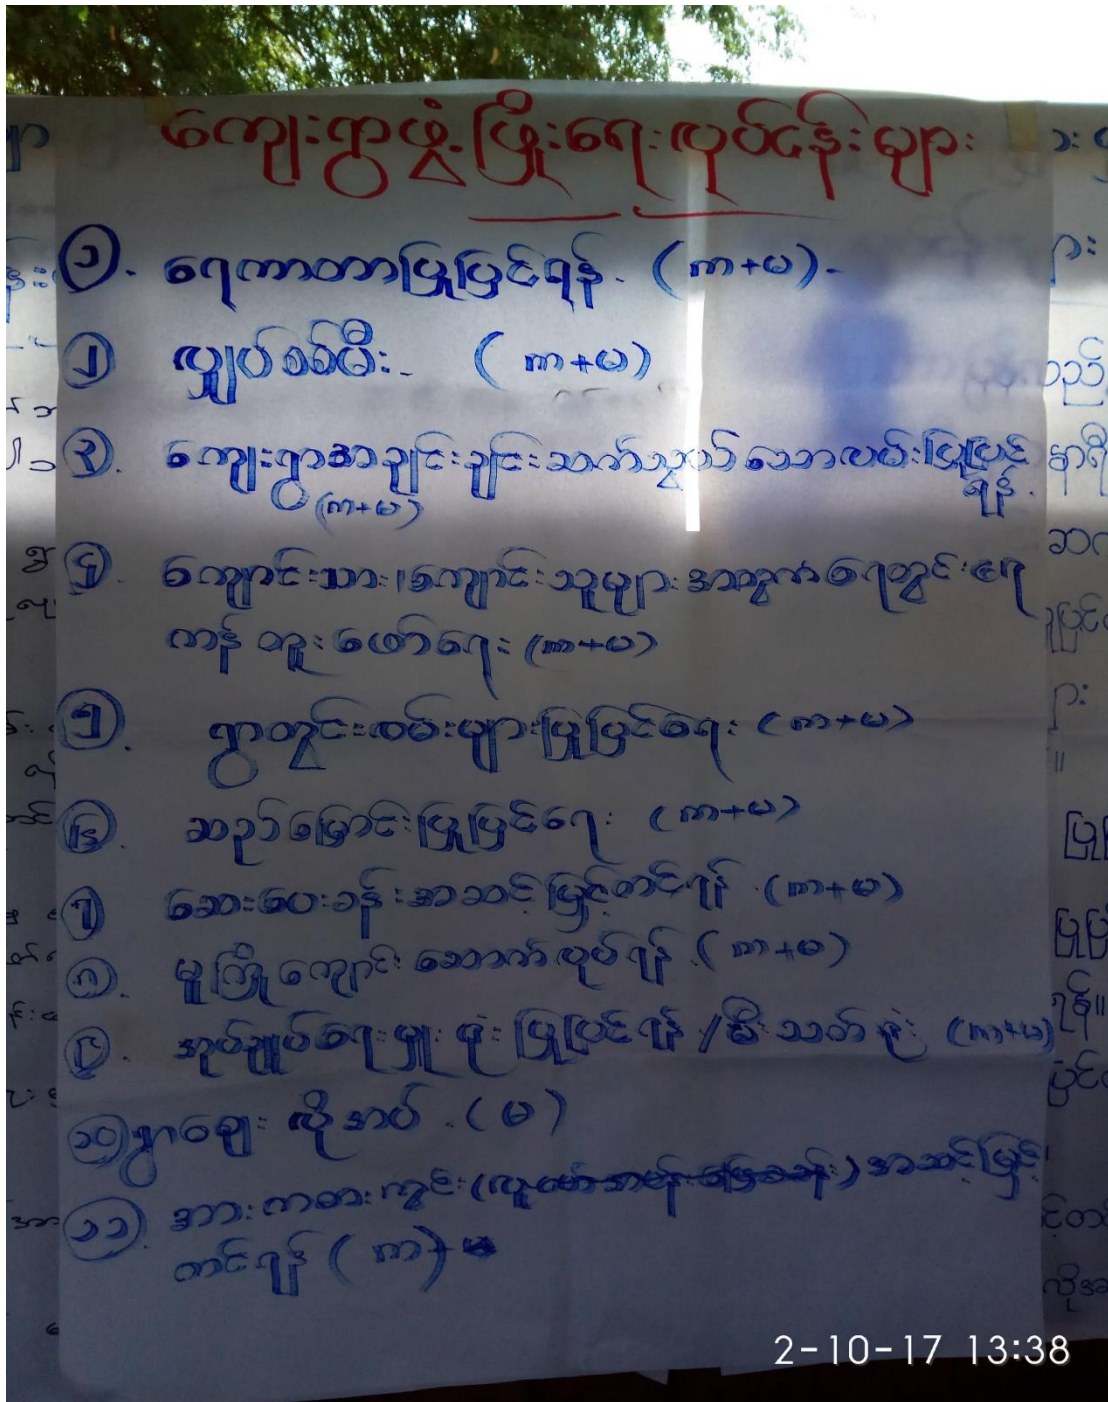 ကျေးရွာဖွံ့ဖြိုးရေးလုပ်ငန်းများ
၁. ရေကာတာပြုပြင်ရန်. (ကာ+မ).
၂ လျှပ်စစ်မီး. (ကာ+မ)
၃. ကျေးရွာအချင်းချင်းဆက်သွယ်သောလမ်းပြုပြင်
ရန်.
(ကာ+မ)
၄. ကျောင်းသား၊ကျောင်းသူများအတွက်ရေတွင်းရေ
ကန်တူးဖော်ရေး (ကာ+မ)
၅. ရွာတွင်းလမ်းများပြုပြင်ရေး (ကာ+မ)
၆. ဆည်မြောင်းပြုပြင်ရေး (ကာ+မ)
၇ ဆေးပေးခန်းအဆင့်မြှင့်တင်ရန် .(ကာ+မ)
၈. မူကြိုကျောင်းဆောက်လုပ်ရန်.(ကာ+မ)
၉. အုပ်ချုပ်ရေးမှူးရုံးပြုပြင်ရန်/မီးသတ်ရုံး (ကာ+မ)
၁၀ ရွာချေးလိုအပ်.(မ)
၁၁. အားကစားကွင်း() အဆင့်မြှင့်
တင်ရန် (ကာ)+
2-10-17 13:38